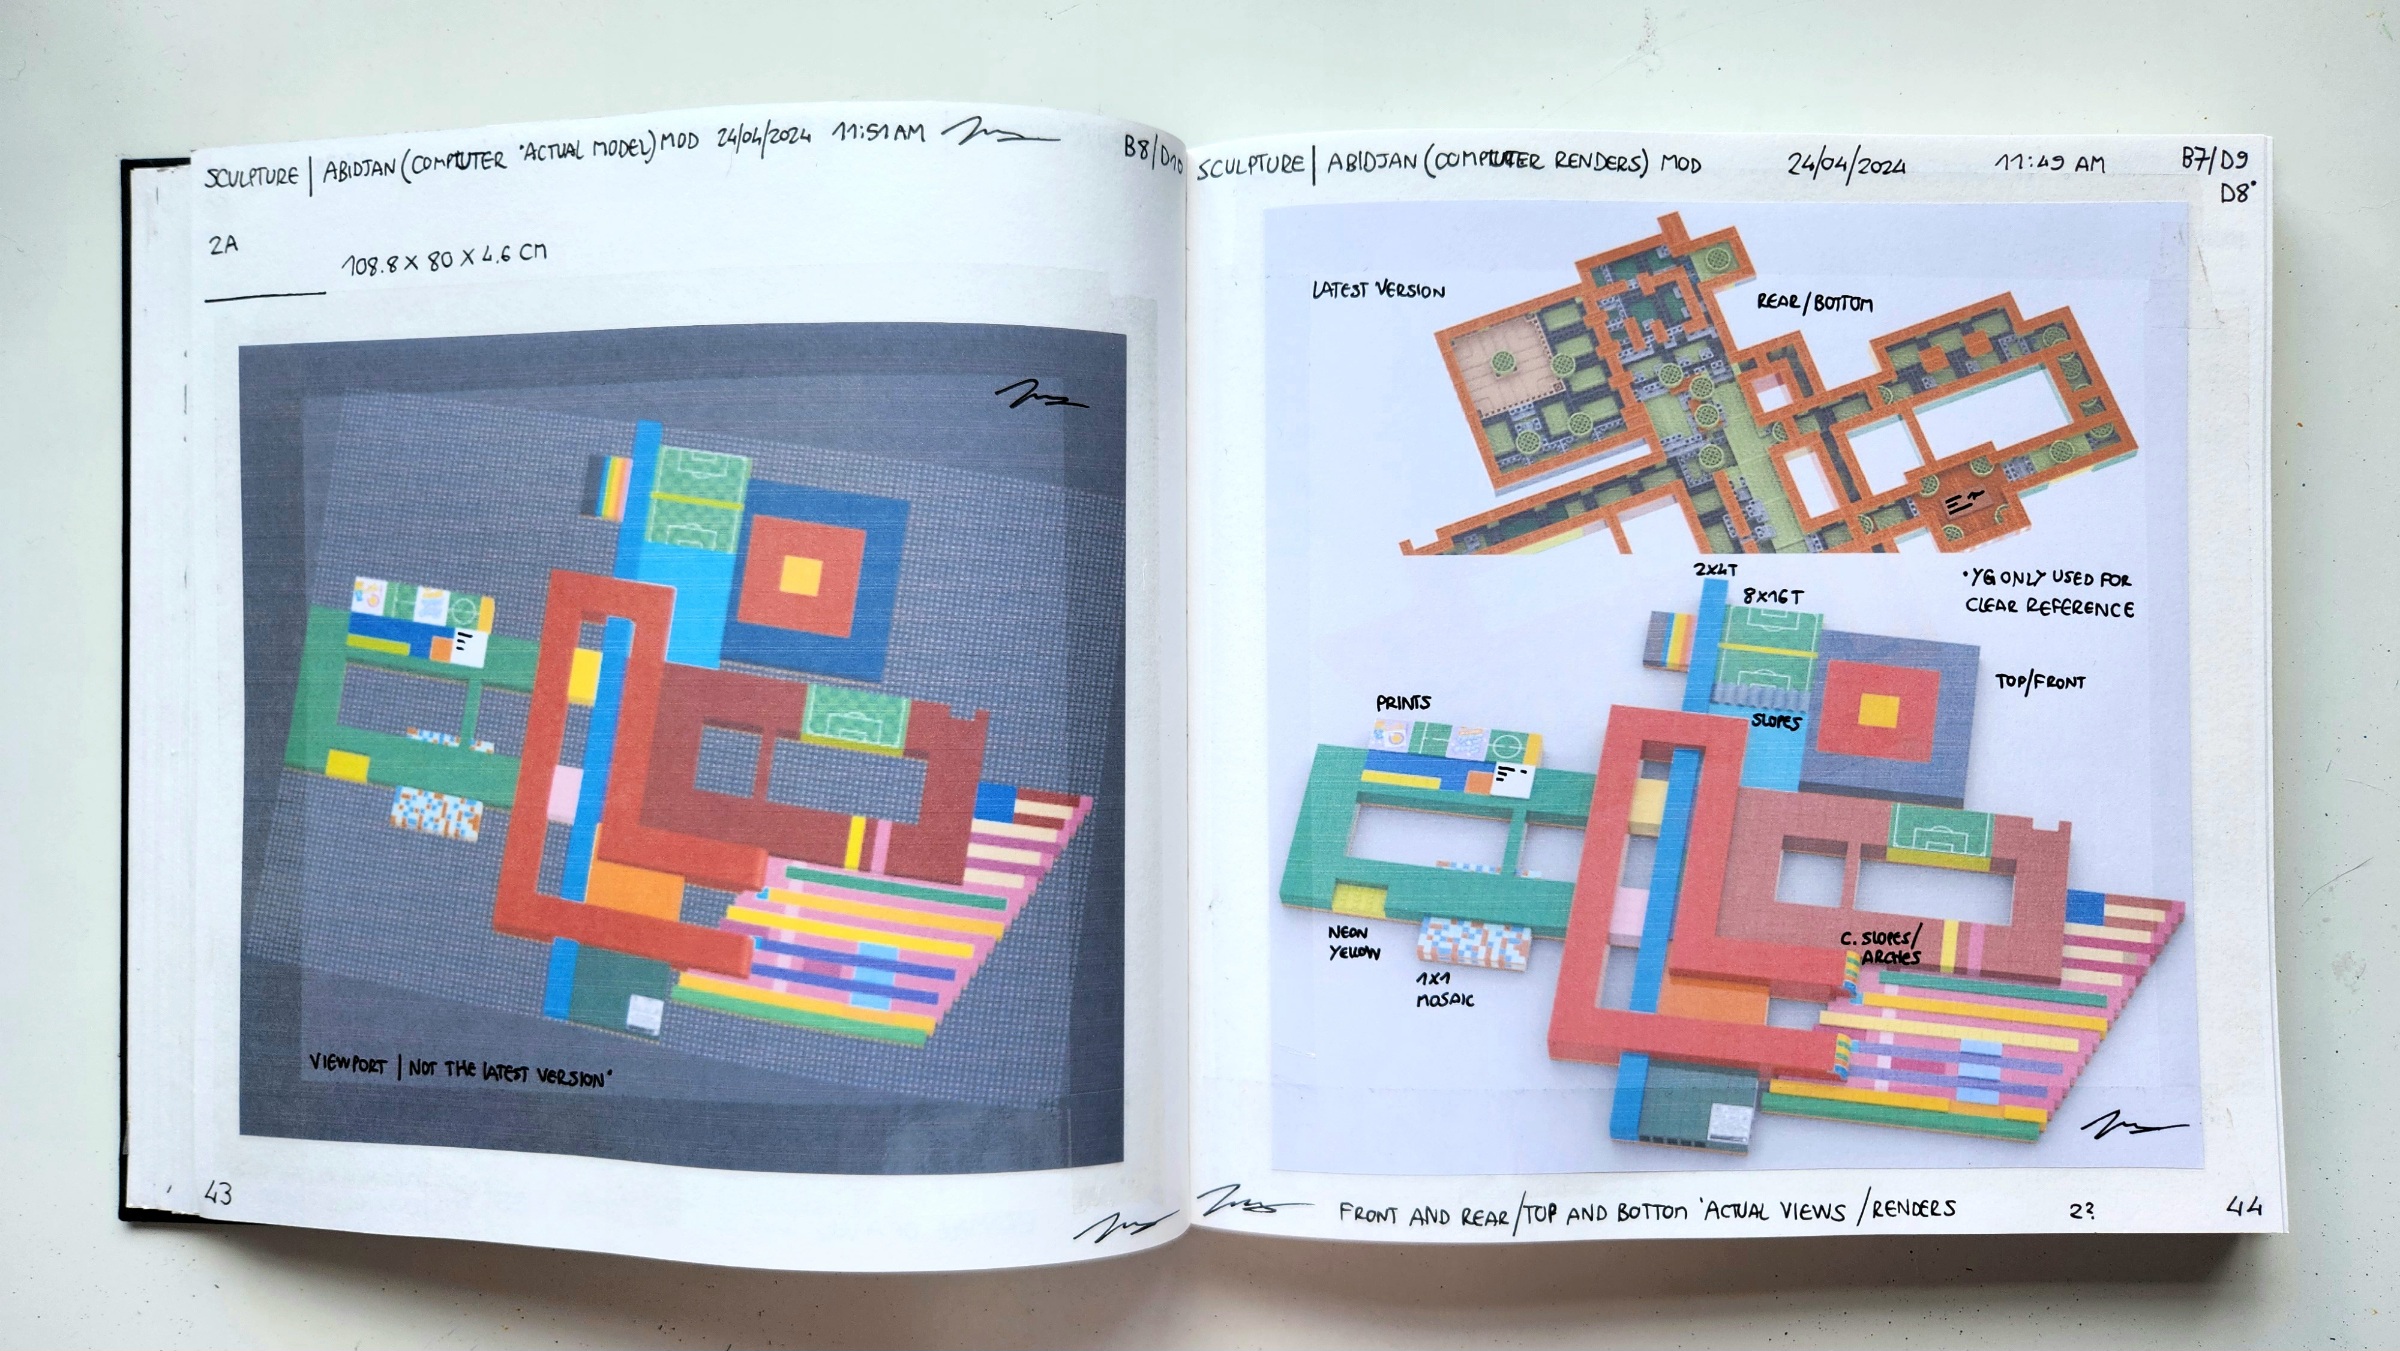 SCULPTURE | ABIDJAN (COMPUTER 'ACTUAL MODEL) MOD 24/04/2024 11:51 AM
B8/D10
2A
108.8 X 80 X 4.6 CM
VIEWPORT | NOT THE LATEST VERSION'
43
SCULPTURE | ABIDJAN (COMPUTER RENDERS) MOD 24/04/2024 11:49 AM B7/D9
D8'
LATEST VERSION
REAR/BOTTOM
2X4T
8X16T
'YG ONLY USED FOR
CLEAR REFERENCE
TOP/FRONT
PRINTS
SLOPES
NEON
YELLOW
1X1
MOSAIC
C. SLOPES/
ARCHES
FRONT AND REAR/TOP AND BOTTOM 'ACTUAL VIEWS /RENDERS 2?
44